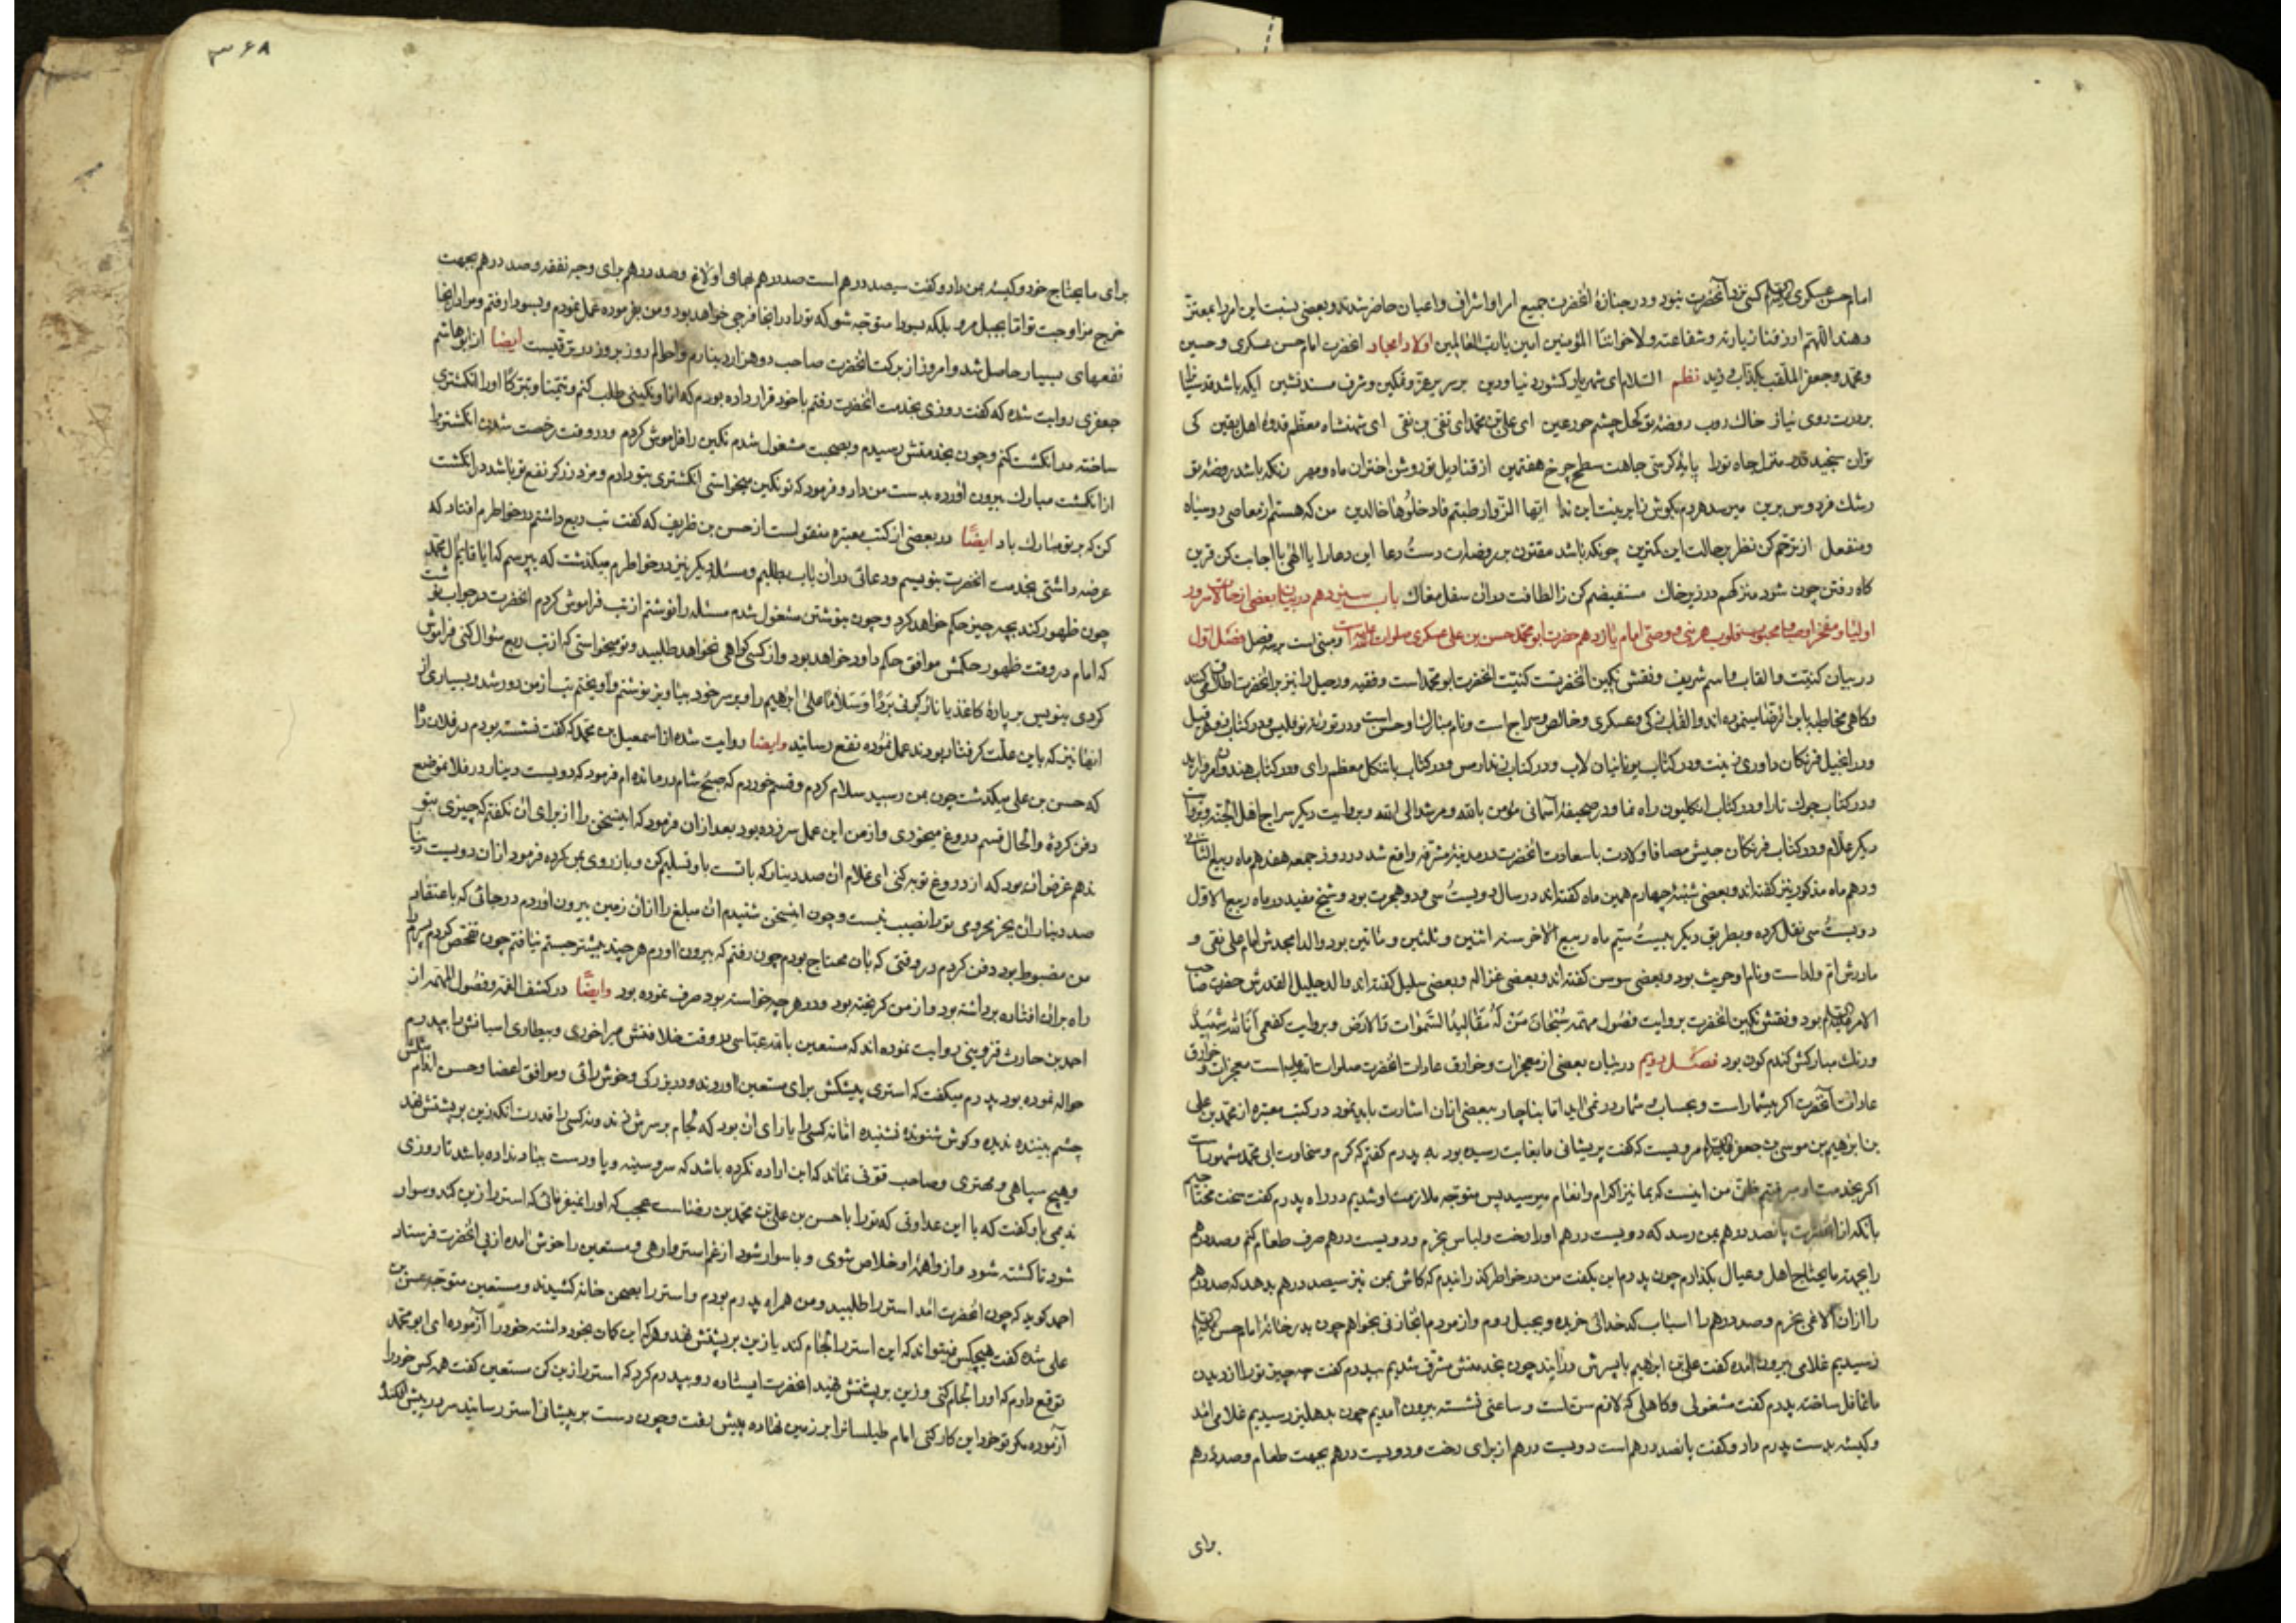 امام حسن عسکری علیه السلام کسی نزد آنحضرت نبود و در جنازهٔ آنحضرت جمیع امرا و اشراف و اعیان حاضر شدند و بعضی نسبت این امر را بمعتز
دهند اللهم ارزقنا زیارته و شفاعته و لاخواننا المؤمنین امین یا رب العالمین اولاد امجاد انحضرت امام حسن عسکری و حسین
و محمد و جعفر الملقب بکذاب نظم السلام ای شهریار کشور دنیا و دین بر سریر عز و تمکین و شرف مسند نشین ایکه باشد قدسیانرا
بر درت روی نیاز خاک روب روضهٔ تو کحل چشم حور عین ای علی بن محمد ای تقی بن نقی ای شهنشاه معظم قدوهٔ اهل یقین کی
توان سنجید قدر منزل جاه تورا پایهٔ کرسی جاهت سطح چرخ هفتمین از قنادیل تو روشن اختران ماه و مهر زانکه باشد روضهٔ تو
رشک فردوس برین میرسد هر دم بکوش زایرینت این ندا ایها الزوار طبتم فادخلوها خالدین من که هستم از معاصی رو سیاه
و منفعل از ترحم کن نظر بر حالت این کمترین چونکه باشد مفتون بر روضات دست دعا این دعا را یا الهی با اجابت کن قرین
کاه رفتن چون شود منزلکهم در زیر خاک مستفیضم کن ز الطافت در ان سفل مغاک باب سیزدهم در بیان بعضی از حالات سرور
اولیا و مفخر اوصیا و محبوب قلوب هر نبی و وصی امام یازدهم حضرت ابو محمد حسن بن علی عسکری صلوات الله علیه و مبنی است بر سه فصل فصل اول
در بیان کنیت و القاب و اسم شریف و نقش نکین انحضرت کنیت انحضرت ابو محمد است و فقیه و رحیل را نیز بر انحضرت اطلاق میکنند
و کاهی مخاطب بابن الرضا مینموده اند و القاب زکی و عسکری و خالص و سراج است و نام مبارک او حسن است و در تورة نوقلیس و در کتاب
و در انجیل فرنکان داوری و در کتاب یونانیان لاب و در کتاب و در کتاب باتنکل معظم رای و در کتاب هندوان
و در کتاب جوک تارا و در کتاب انکلیون راه نما و در صحیفهٔ آسمانی مؤمن بالله و مرشد الی الله و بروایت دیکر سراج اهل الجنة و بروایت
دیکر علام و در کتاب فرنکان جیش مصافا و ولادت با سعادت انحضرت در مدینهٔ مشرفه واقع شد در روز جمعه هفدهم ماه ربیع الثانی
و دهم ماه مذکور نیز کفته اند و بعضی شنبهٔ چهارم همین ماه کفته اند در سال دویست و سی و دو هجرت بود و شیخ مفید در ماه ربیع الاول
دویست سی نقل کرده و بطریق دیکر بیست ستیم ماه ربیع الاخر سنه اثنین و ثلثین و مائتین بود والد امجدش امام علی نقی و
مادرش ام ولد است و نام او حریث بود و بعضی سوسن کفته اند و بعضی غزاله و بعضی سلیل کفته اند والد جلیل القدرش حضرت صاحب
الامر علیه السلام بود و نقش نکین انحضرت بروایت فصول مهمه سبحان من له مقالید السموات و الارض و بروایت کفعمی انا لله شهید
و رنک مبارکش کندم کون بود فصل دویم در بیان بعضی از معجزات و خوارق عادات انحضرت صلوات الله علیه است معجزات و خوارق
عادات آنحضرت اکر بیشمار است و بحساب و شمار در نمی اید اما بناچار ببعضی از ان اشارت باید نمود در کتب معتبره از محمد بن علی
بن ابرهیم بن موسی بن جعفر علیه السلام مرویست که کفت پریشانی ما بغایت رسیده بود به پدرم کفتم که کرم و سخاوت ابی محمد مشهور است
اکر بخدمت او میرفتم ظن من اینست که بما نیز اکرام و انعام میرسید پس متوجه ملازمت او شدیم در راه پدرم کفت سخت محتاجیم
بانکه از انحضرت پانصد درهم بمن رسد که دویست درهم او را رخت و لباس بخرم و دویست درهم صرف طعام کنم و صد درهم
را بجهة ما یحتاج اهل و عیال بکذارم چون پدرم این بکفت من در خواطر کذرانیدم که کاش بمن نیز سیصد درهم بدهد که صد درهم
را از ان الاغی بخرم و صد درهم را اسباب کدخدائی خریده و بجبل روم و از مردم انجا زنی بخواهم چون بدر خانهٔ امام حسن علیه السلام
رسیدیم غلامی بیرون امده کفت علی بن ابرهیم با پسرش در ایند چون بخدمتش مشرف شدیم بپدرم کفت چه چیز تو را از دیدن
ما غافل ساخته پدرم کفت مشغولی و کاهلی که لازم سن است و ساعتی نشسته بیرون امدیم چون بدهلیز رسیدیم غلامی امد
و کیسه بدست پدرم داد و کفت پانصد درهم است دویست درهم از برای رخت و دویست درهم بجهت طعام و صد درهم
برای
۳۶۸
برای ما یحتاج خود و کیسهٔ بمن داد و کفت سیصد درهم است صد درهم بهای اولاغ و صد درهم برای وجه نفقه و صد درهم بجهت
خرج مزاوجت تو اما بجبل مرو بلکه بسودا متوجه شو که تو را در انجا فرجی خواهد بود و من بفرموده عمل نمودم و بسودا رفتم و مرا در انجا
نفعهای بسیار حاصل شد و امروز از برکت انحضرت صاحب دو هزار دینارم و احوالم روز بروز در ترقیست ایضا از ابو هاشم
جعفری روایت شده که کفت روزی بخدمت انحضرت رفتم با خود قرار داده بودم که از او نکینی طلب کنم و تیمنا و تبرکا او را انکشتری
ساخته در انکشت کنم و چون بخدمتش رسیدم و بصحبت مشغول شدم نکین را فراموش کردم و در وقت رخصت شدن انکشتر را
از انکشت مبارک بیرون اورده بدست من داد و فرمود که تو نکین میخواستی انکشتری بتو دادم و مزد زرکر نفع تو باشد در انکشت
کن که بر تو مبارک باد ایضا در بعضی از کتب معتبره منقولست از حسن بن ظریف که کفت تب ربع داشتم در خواطرم افتاد که
عرضه داشتی بخدمت انحضرت بنویسم و دعائی در ان باب بطلبم و مسئلهٔ دیکر نیز در خواطرم میکذشت که بپرسم که ایا قایم ال محمد
چون ظهور کند بچه چیز حکم خواهد کرد و چون بنوشتن مشغول شدم مسئله را نوشتم از تب فراموش کردم انحضرت در جواب نوشت
که امام در وقت ظهور حکمش موافق حکم داود خواهد بود و از کسی کواهی نخواهد طلبید و تو میخواستی که از تب ربع سئوال کنی فراموش
کردی بنویس بر پارهٔ کاغذ یا نار کونی بردا و سلاما علی ابراهیم را و بر سر خود بیاویز نوشتم و آویختم تب از من دور شد و بسیاری از
انها نیز که باین علت کرفتار بودند عمل نموده نفع رسانید و ایضا روایت شده از اسمعیل بن محمد که کفت نشسته بودم در فلان راه
که حسن بن علی میکذشت چون بمن رسید سلام کردم و قسم خوردم که صبح شام در مانده ام فرمود که دویست دینار در فلان موضع
دفن کردهٔ و الحال قسم دروغ میخوری و از من این عمل سر زده بود بعد از ان فرمود که این سخن را از برای ان نکفتم که چیزی بتو
ندهم غرض ان بود که از دروغ توبه کنی ای غلام ان صد دینار که با تست باو تسلیم کن و باز روی بمن کرده فرمود از ان دویست دینار
صد دینار ان تو را نصیب نیست و چون این سخن شنیدم ان مبلغ را از ان زمین بیرون اوردم در جائی که باعتقاد
من مضبوط بود دفن کردم در وقتی که بان محتاج بودم چون رفتم که بیرون اورم هر چند بیشتر جستم نیافتم چون تفحص کردم پسرم
راه بران افتاده برداشته بود و از من کریخته بود و در هر چه خواسته بود صرف نموده بود و ایضا در کشف الغمه و فصول المهمه از
احمد بن حارث قزوینی روایت نموده اند که مستعین بالله عباسی در وقت خلافتش میراخوری و بیطاری اسبانش را بپدرم
حواله نموده بود پدرم میکفت که استری پیشکش برای مستعین اوردند و در بزرکی و خوش راهی و موافق اعضا و حسن اندام مثلش
چشم بیننده ندیده و کوش شنونده نشنیده اما نه کسی را یارای ان بود که لجام بر سرش زند و نه کسی را قدرت انکه زین بر پشتش نهد
و هیچ سپاهی و مهتری و صاحب قوتی نماند که این اراده نکرده باشد که سر و سینه و پا و دست بباد نداده باشد تا روزی
ندیمی باو کفت که با این عداوتی که تو را با حسن بن علی بن محمد بن رضاست عجب که او را نمیفرمائی که استر را زین کند و سوار
شود تا کشته شود و از واهمهٔ او خلاص شوی و یا سوار شود از غم استر وارهی و مستعین را خوش امده از پی انحضرت فرستاد
احمد کوید که چون انحضرت امد استر را طلبید و من همراه پدرم بودم و استر را بصحن خانه کشیدند و مستعین متوجه حسن بن
علی شده کفت هیچکس نمیتواند که این استر را لجام کند یا زین بر پشتش نهد و هر که این کمان بخود داشته خود را آزموده ای ابو محمد
توقع دارم که او را لجام کنی و زین بر پشتش نهید انحضرت ایستاده رو بپدرم کرد که استر را زین کن مستعین کفت همه کس خود را
آزموده مکر تو خود این کار کنی امام طیلسانرا بر زمین نهاده پیش رفت و چون دست بر پیشانی استر رسانید سر در پیش افکند